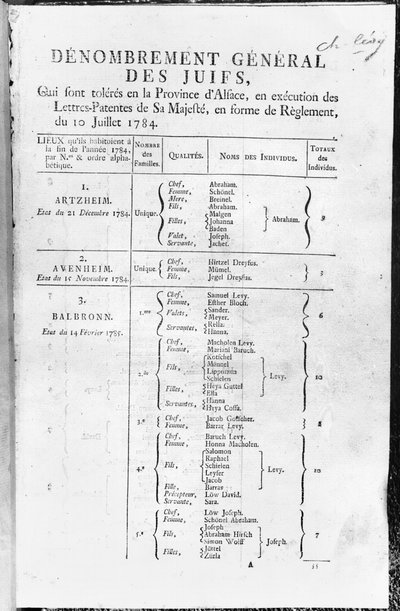 ch. lévy
DÉNOMBREMENT GÉNÉRAL
DES JUIFS,
Qui ſont tolérés en la Province d'Alſace, en exécution des
Lettres-Patentes de Sa Majeſté, en forme de Règlement,
du 10 Juillet 1784.
LIEUX qu'ils habitoient à la fin de l'année 1784, par N.os & ordre alphabétique.
NOMBRE des Familles.
QUALITÉS.
NOMS DES INDIVIDUS.
TOTAUX des Individus.
1.
ARTZHEIM.
Etat du 21 Décembre 1784.
Unique.
Chef, Abraham.
Femme, Schönel.
Mere, Breinel.
Fils, Abraham.
Filles, Malgen
Johanna
Baden
Abraham.
Valet, Joſeph.
Servante, Jachet.
9
2.
AVENHEIM.
Etat du 15 Novembre 1784.
Unique.
Chef, Hirtzel Dreyfus.
Femme, Mümel.
Fils, Jegel Dreyfus.
3
3.
BALBRONN.
Etat du 14 Février 1785.
1.ere
Chef, Samuel Levy.
Femme, Eſther Bloch.
Valets, Sander.
Meyer.
Servantes, Rella.
Hanna.
6
2.de
Chef, Macholen Levy.
Femme, Mariani Baruch.
Fils, Kotſchel
Männel
Lippmann
Schielen
Filles, Heya Guttel
Ella
Levy.
Servantes, Hanna
Heya Coſſa.
10
3.e
Chef, Jacob Gotſcher.
Femme, Barrat Levy.
2
4.e
Chef, Baruch Levy.
Femme, Honna Macholen.
Fils, Salomon
Raphael
Schielen
Leyſer
Jacob
Levy.
Fils, Barras
Précepteur, Löw David.
Servante, Sara.
10
5.e
Chef, Löw Joſeph.
Femme, Schönel Abraham.
Fils, Joſeph
Abraham Hirſch
Simon Wolff
Filles, Jüttel
Zürla
Joſeph.
7
A